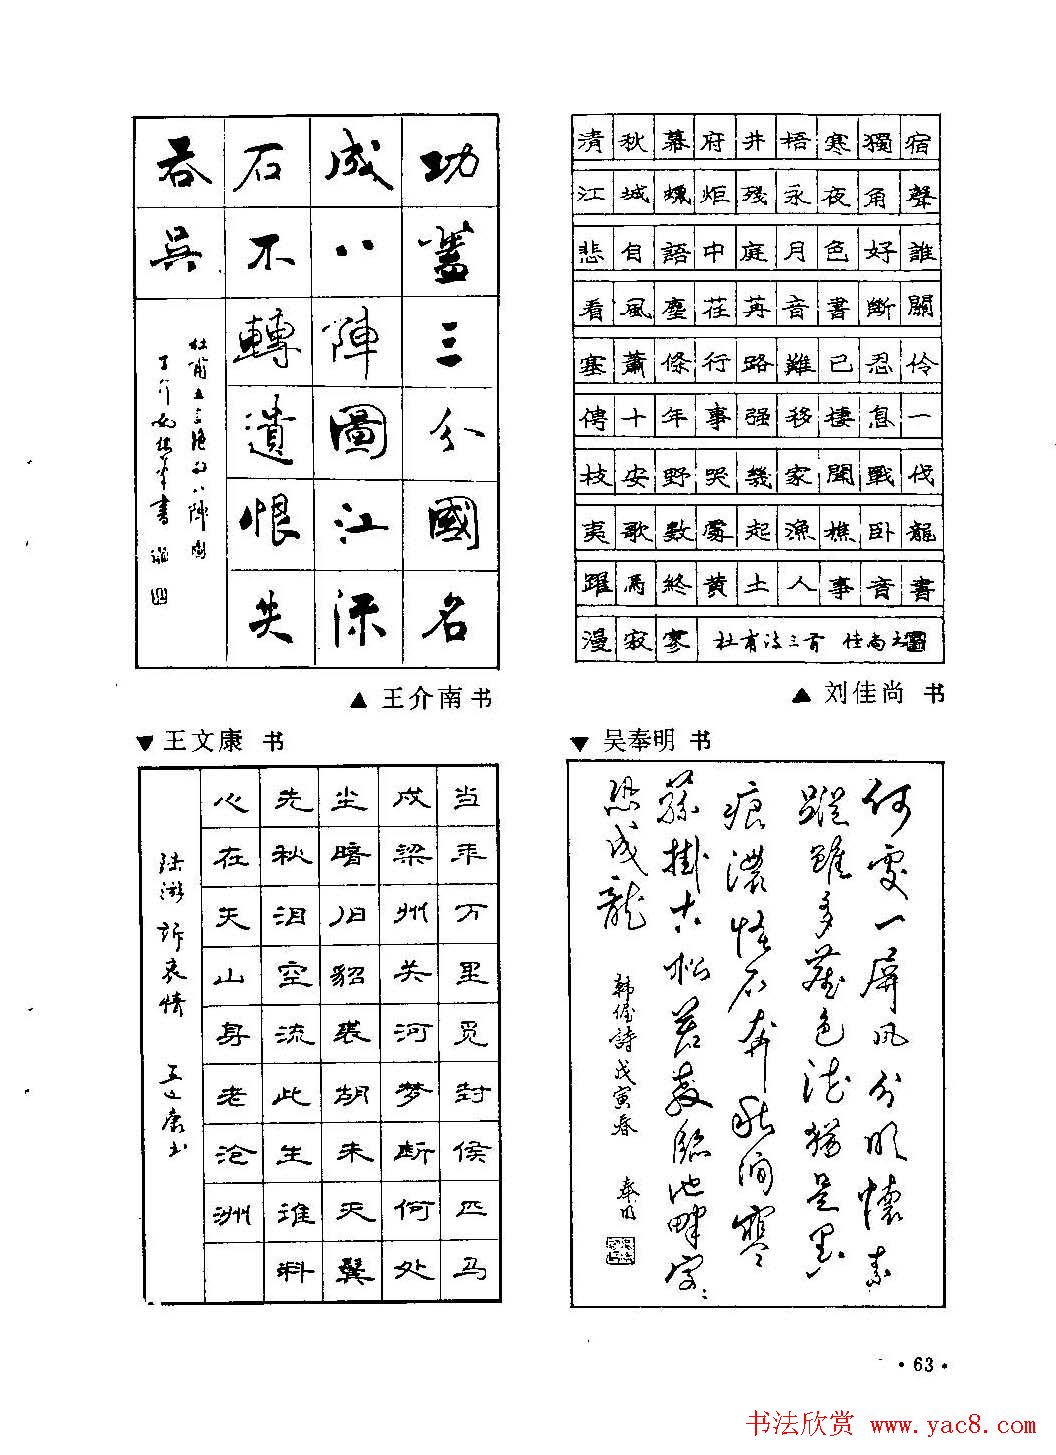 功蓋三分國名
成八陣圖江流
石不轉遺恨失
吞吳
杜甫五言绝句八陣圖
▲ 王介南书
清秋幕府井梧寒獨宿
江城蠟炬殘永夜角聲
悲自語中庭月色好誰
看風塵荏苒音書斷關
塞蕭條行路難已忍伶
俜十年事强移棲息一
枝安野哭幾家聞戰伐
夷歌數處起漁樵卧龍
躍馬終黄土人事音書
漫寂寥 杜甫诗三首 佳尚
▲ 刘佳尚 书
▼ 王文康 书
当年万里觅封侯匹马
戍梁州关河梦断何处
尘暗旧貂裘胡未灭鬓
先秋泪空流此生谁料
心在天山身老沧洲
陆游诉衷情 王文康书
▼ 吴奉明 书
何處一屏風分明懷素
蹤雖多塵色染猶是墨
痕濃怪石奔秋澗寒
藤掛古松若教臨池畔字:
恐成龍
韩偓詩戊寅春 奉明
·63·
书法欣赏 www.yac8.com